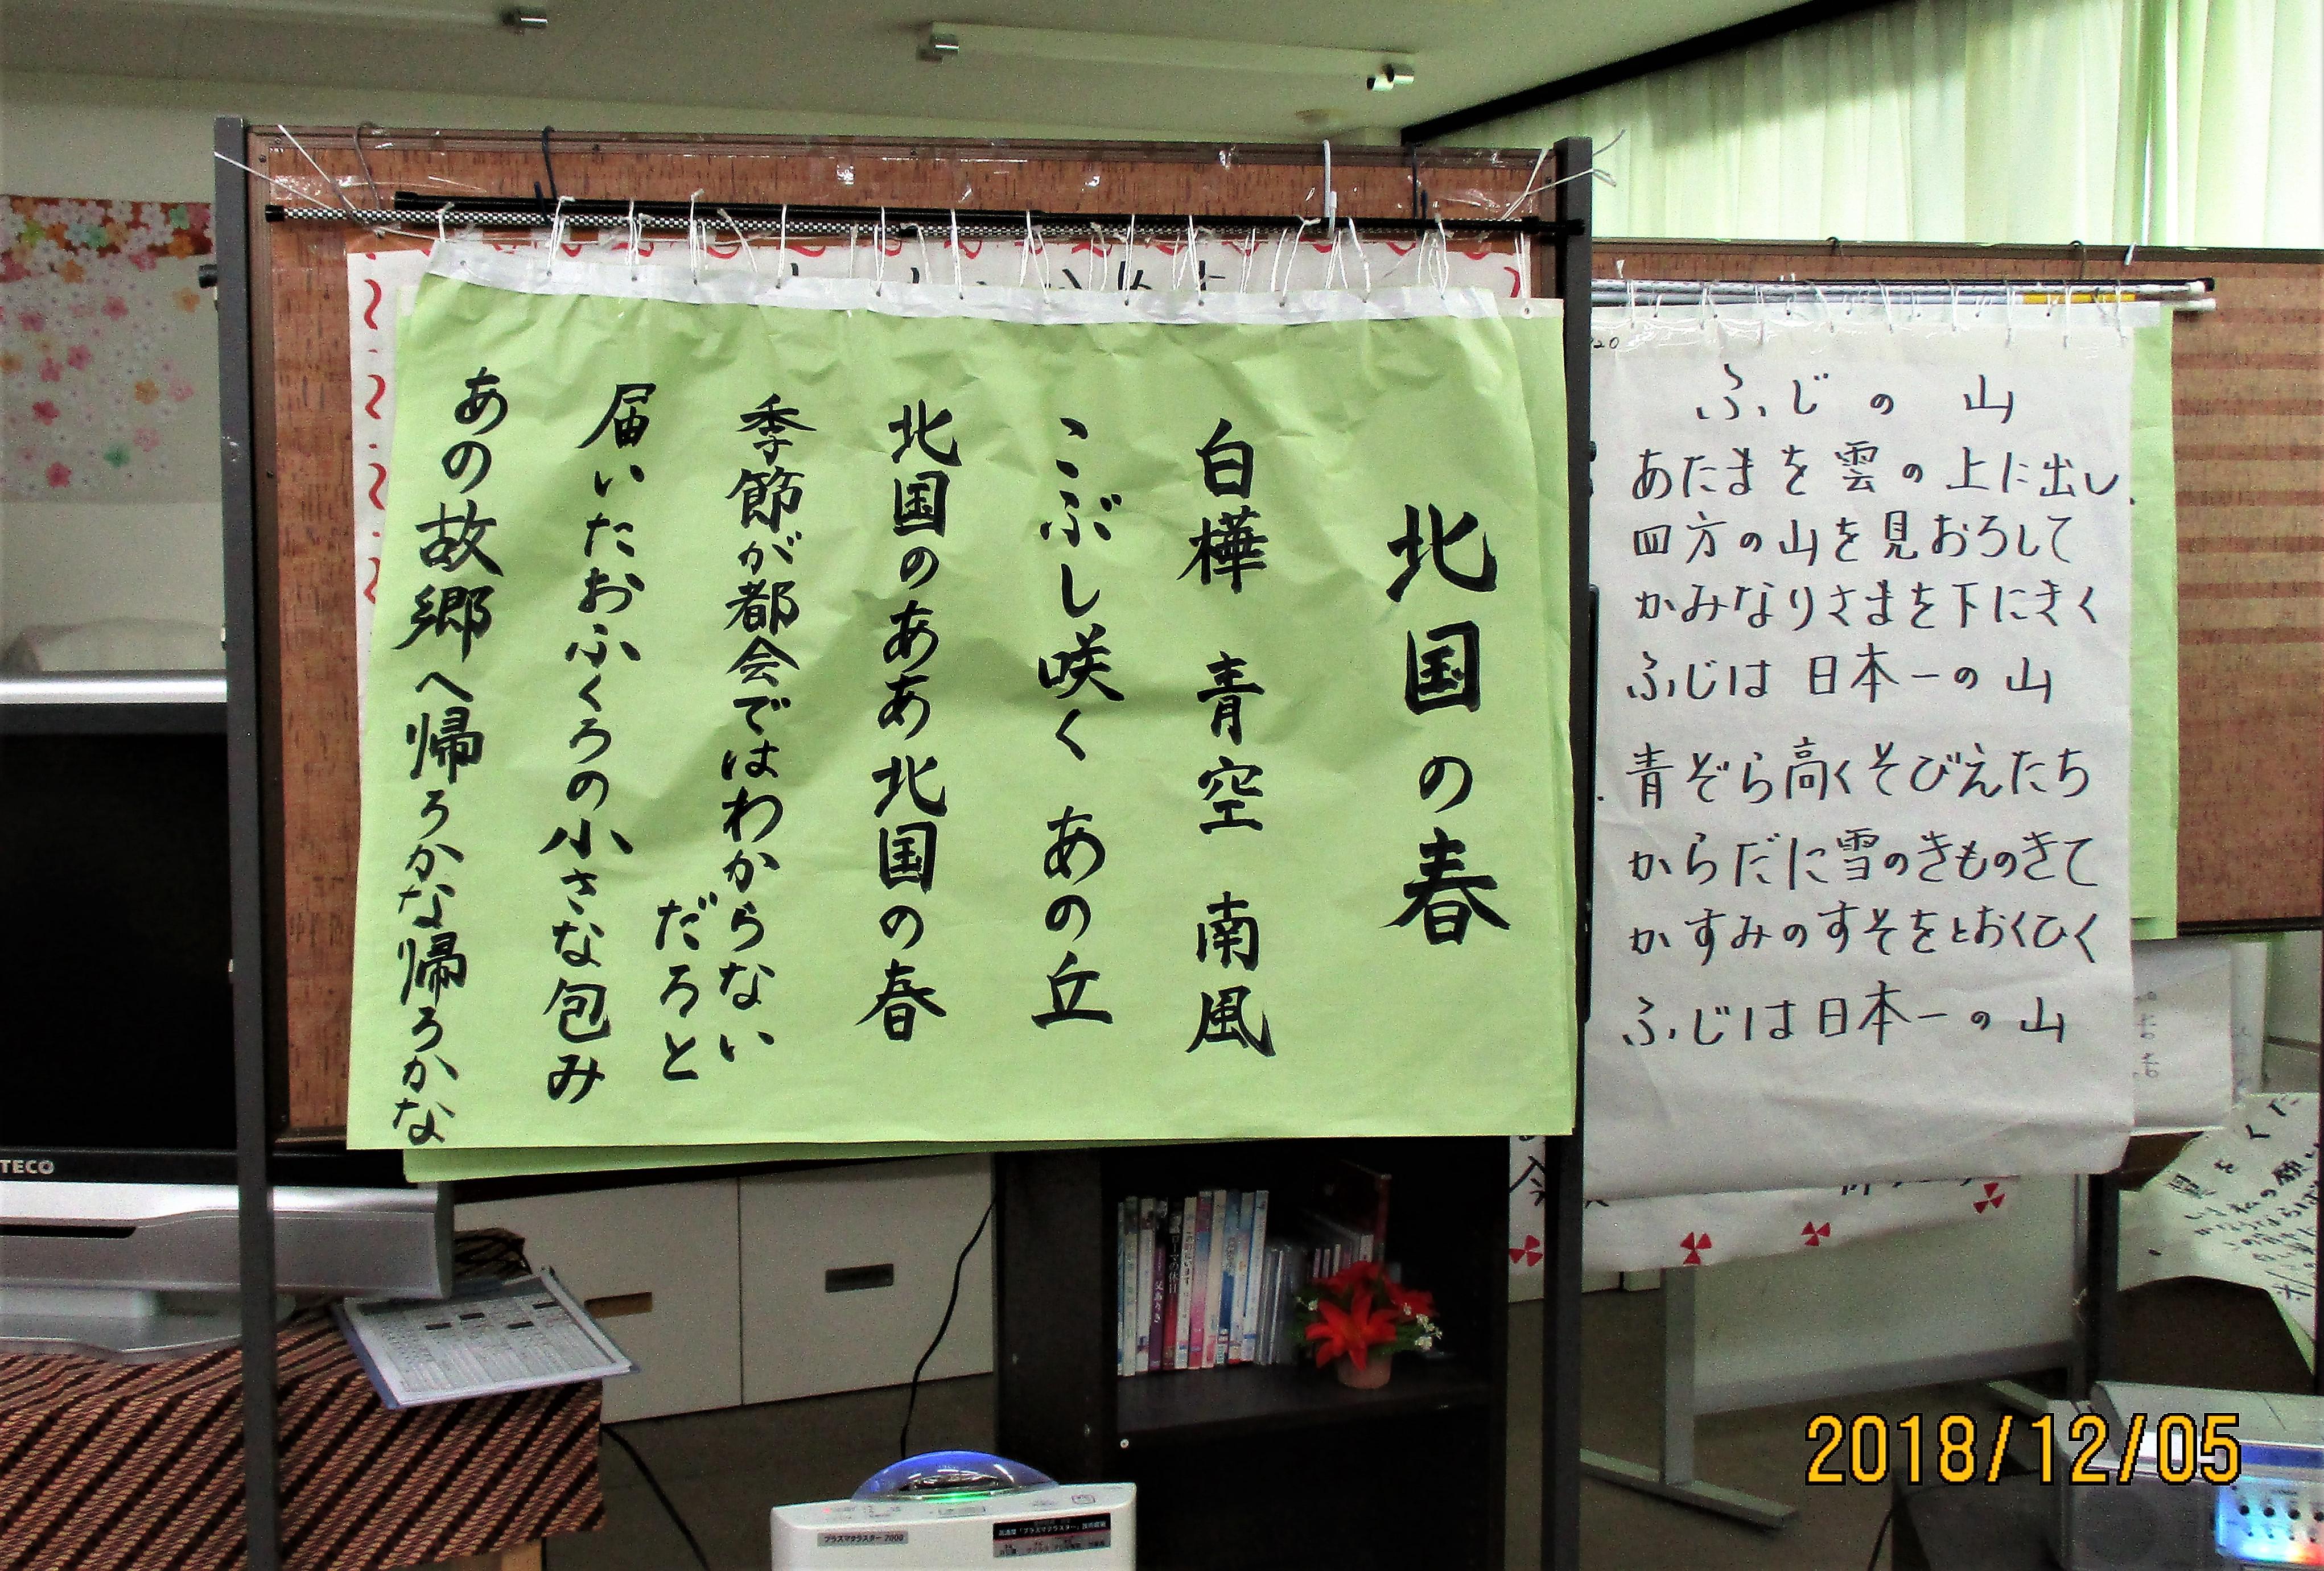 北国の春
白樺 青空 南風
こぶし咲く あの丘
北国のああ北国の春
季節が都会ではわからない
だろと
届いたおふくろの小さな包み
あの故郷へ帰ろかな帰ろかな
ふじの山
あたまを雲の上に出し
四方の山を見おろして
かみなりさまを下にきく
ふじは日本一の山
青ぞら高くそびえたち
からだに雪のきものきて
かすみのすそをとおくひく
ふじは日本一の山
TECO
ローマの休日
プラズマクラスター 7000
2018/12/05